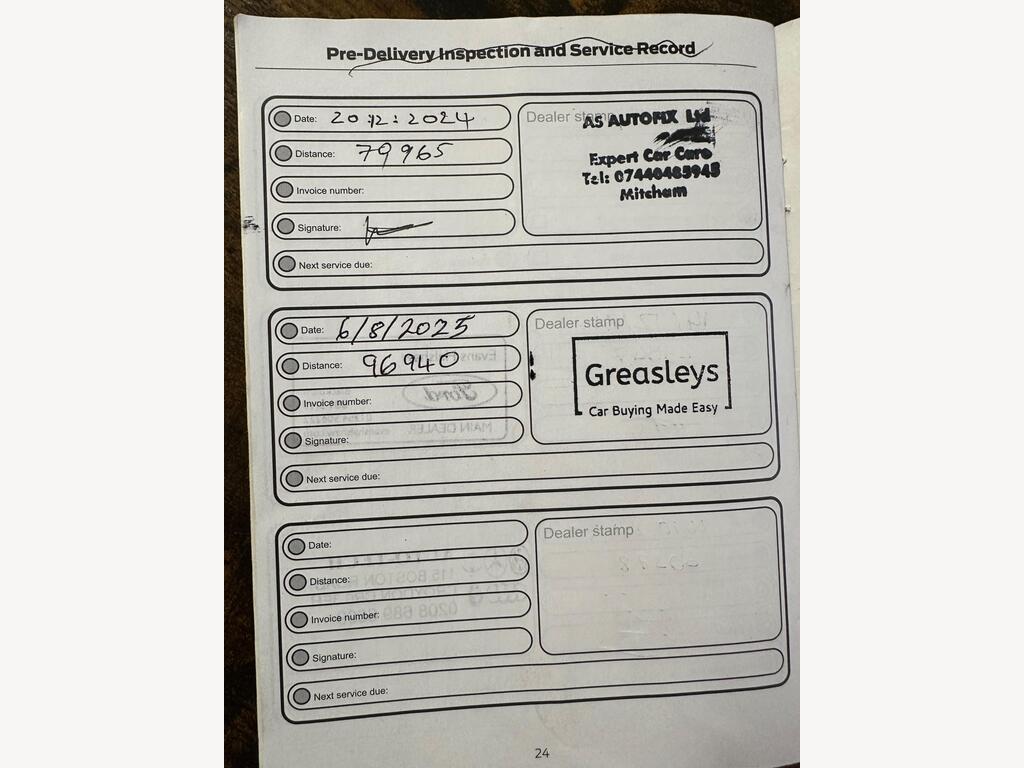 Pre-Delivery Inspection and Service Record
Date: 20:12:2024
Distance: 79965
Invoice number:
Signature:
Next service due:
Dealer stamp
AS AUTOFIX Ltd
Expert Car Care
Tel: 07440485945
Mitcham
Date: 6/8/2025
Distance: 96940
Invoice number:
Signature:
Next service due:
Dealer stamp
Greasleys
Car Buying Made Easy
Date:
Distance:
Invoice number:
Signature:
Next service due:
Dealer stamp
24